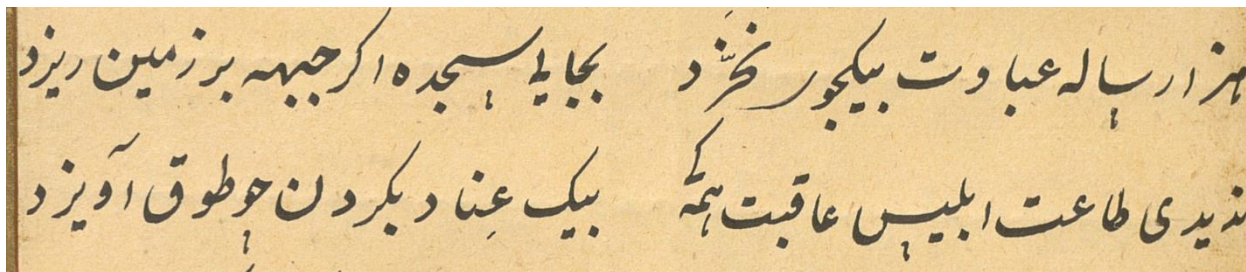 هزار ساله عبادت بیکجو نخرّد بجایی سجده اکر جبهه بر زمین ریزد
ندیدی طاعت ابلیس عاقبت همه بیک عناد بکردن چو طوق آویزد